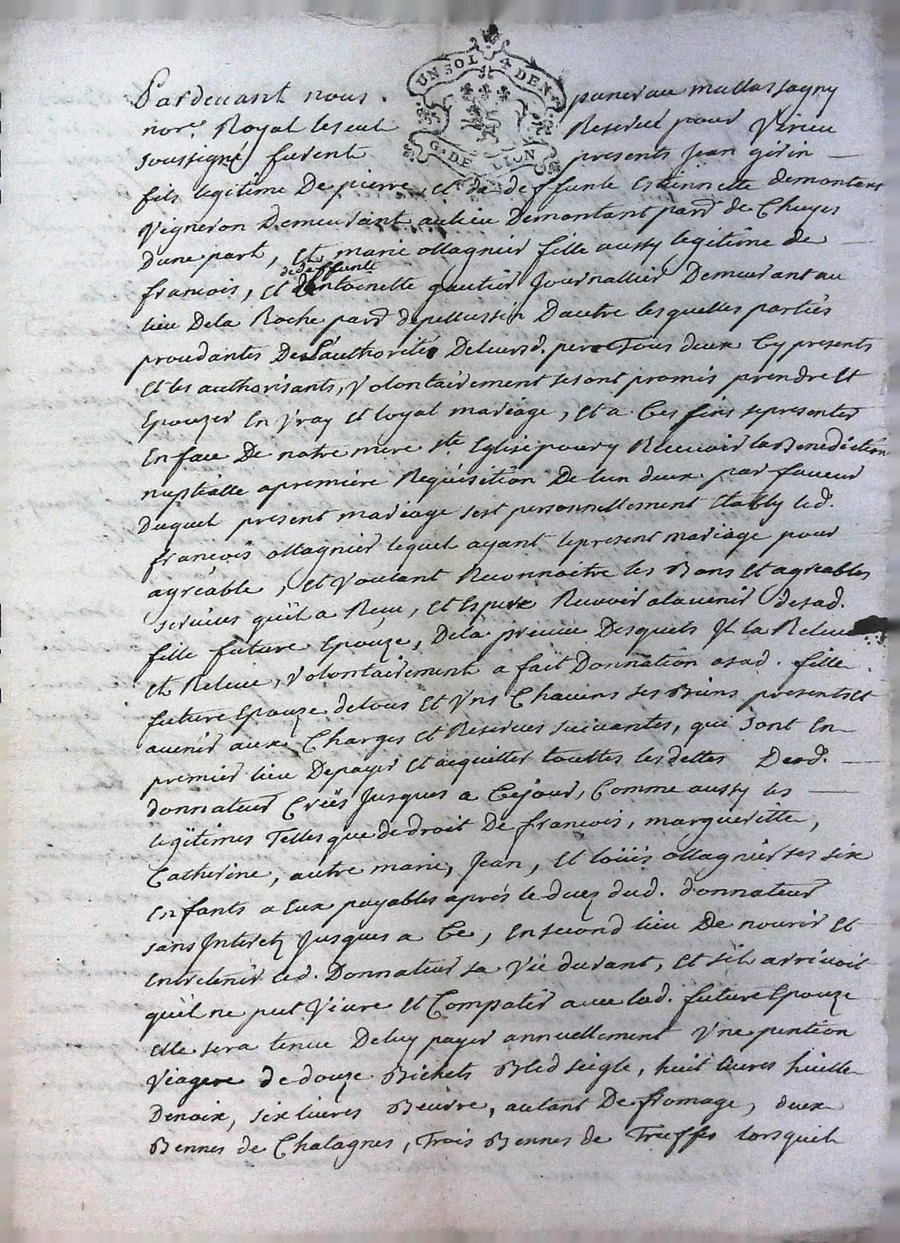 UN SOL 4 DEN.
G. DE LION
Pardevant nous . punevau mattassagny
nore. Royal le seul Reservé pour Virieu
soussigné furent presents Jean girin —
fils legitime De pierre, et da deffunte Estiennette demontant
Vigneron Demeurant au lieu Demontant parr. de Chuyes
Dune part, Et marie ollagnier fille aussy legitime de
dedeffunte
francois, et dantoinette gautier Journallier Demeurant au
lieu Dela Roche parr. depellussin Dautre lesquelles parties
proudantes De L'authorité Deleursd. pere Tous deux Cy presents
Et les authorisants, Volontairement se sont promis prendre Et
Epouzer En Vray Et loyal mariage, Et a Ces fins se presenter
En face De notre mere Ste. Eglise pour y Recevoir la Benediction
nuptialle a premiere Requisition De lun deux par faveur
Duquel present mariage sest personnellement Etably led.
francois ollagnier lequel ayant le present mariage pour
agréable, Et Voulant Reconnoitre les Bons Et agréables
services quil a Reçu, Et Espere Recevoir alavenir desad.
fille future Epouze, Dela preuve Desquels Il la Releve
Et Releve, Volontairement a fait Donnation asad. fille
future Epouze de tous Et Uns Chacuns ses Biens presents Et
avenir aux Charges Et Reserves suivantes, qui sont En—
premier lieu Depayer Et acquitter touttes les dettes Dud. —
donnateur Créés Jusques a Cejour, Comme aussy les —
legitimes Telles que de droit De francois, margueritte,
Catherine, autre marie, Jean, Et loüis ollagnier ses six
Enfants a Eux payables après le decez dud. donnateur
sans Interetz Jusques a Ce, En second lieu De nourir Et
Entretenir led. Donnateur sa Vie durant, Et sil arrivoit
quil ne put Vivre Et Compatir avec lad. future Epouze
Elle sera tenue Deluy payer annuellement Une pention
Viagere de douze Bichets Bled seigle, huit livres huille
Denoix, six livres Beurre, autant De fromage, deux
Bennes de Chatagnes, Trois Bennes de Truffes lorsquil